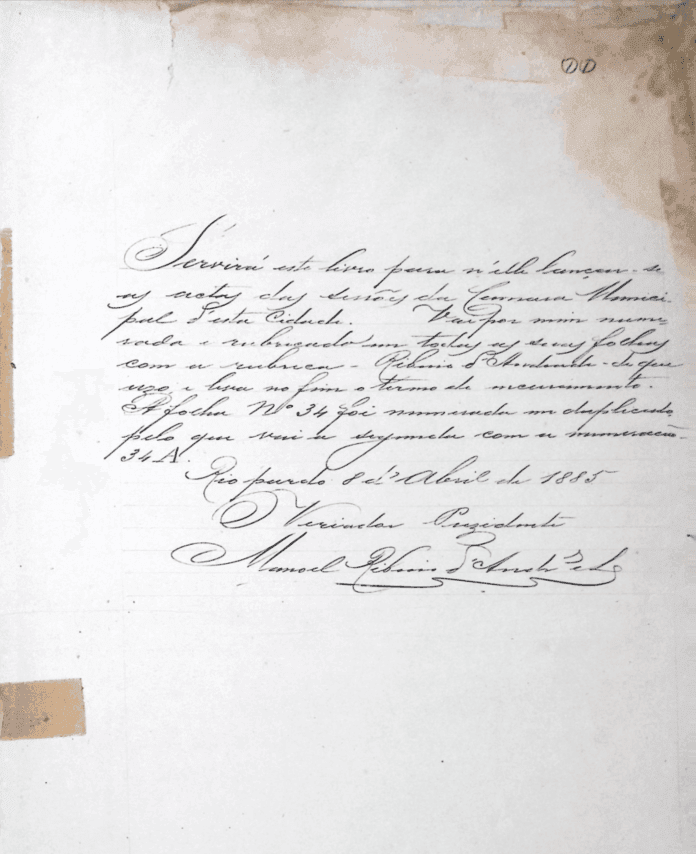 DD
Servirá este livro para n'elle lançar-se
as actas das sessões da Camara Munici
pal d'esta Cidade. Vai por mim nume-
rada e rubricado em todas as suas folhas
com a rubrica - Ribeiro d'Andrade - de que
uzo e leva no fim o termo de encerramento.
A folha Nº 34 foi numerada em duplicata,
pelo que vai a segunda com a numeração
34 A.
Rio pardo 8 d' Abril de 1885
O Veriador Prezidente
Manoel Ribeiro d'Andrade